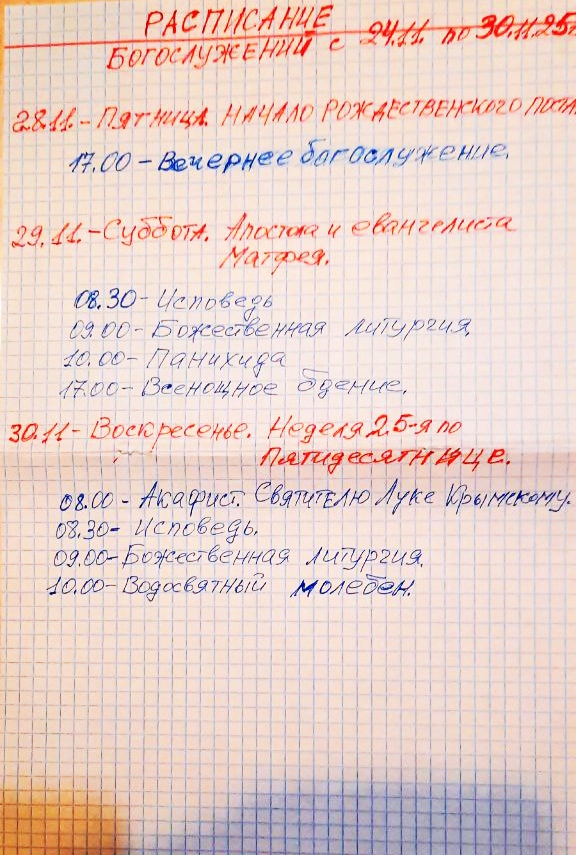 РАСПИСАНИЕ
БОГОСЛУЖЕНИЙ с 24.11. по 30.11.25г
28.11.- Пятница. НАЧАЛО РОЖДЕСТВЕНСКОГО ПОСТА.
17.00 - Вечернее богослужение.
29.11.- Суббота. Апостола и евангелиста
Матфея.
08.30- Исповедь
09.00- Божественная литургия.
10.00- Панихида
17.00- Всенощное бдение.
30.11- Воскресенье. Неделя 25-я по
Пятидесятнице.
08.00 - Акафист. Святителю Луке Крымскому.
08.30- Исповедь.
09.00- Божественная литургия.
10.00- Водосвятный молебен.